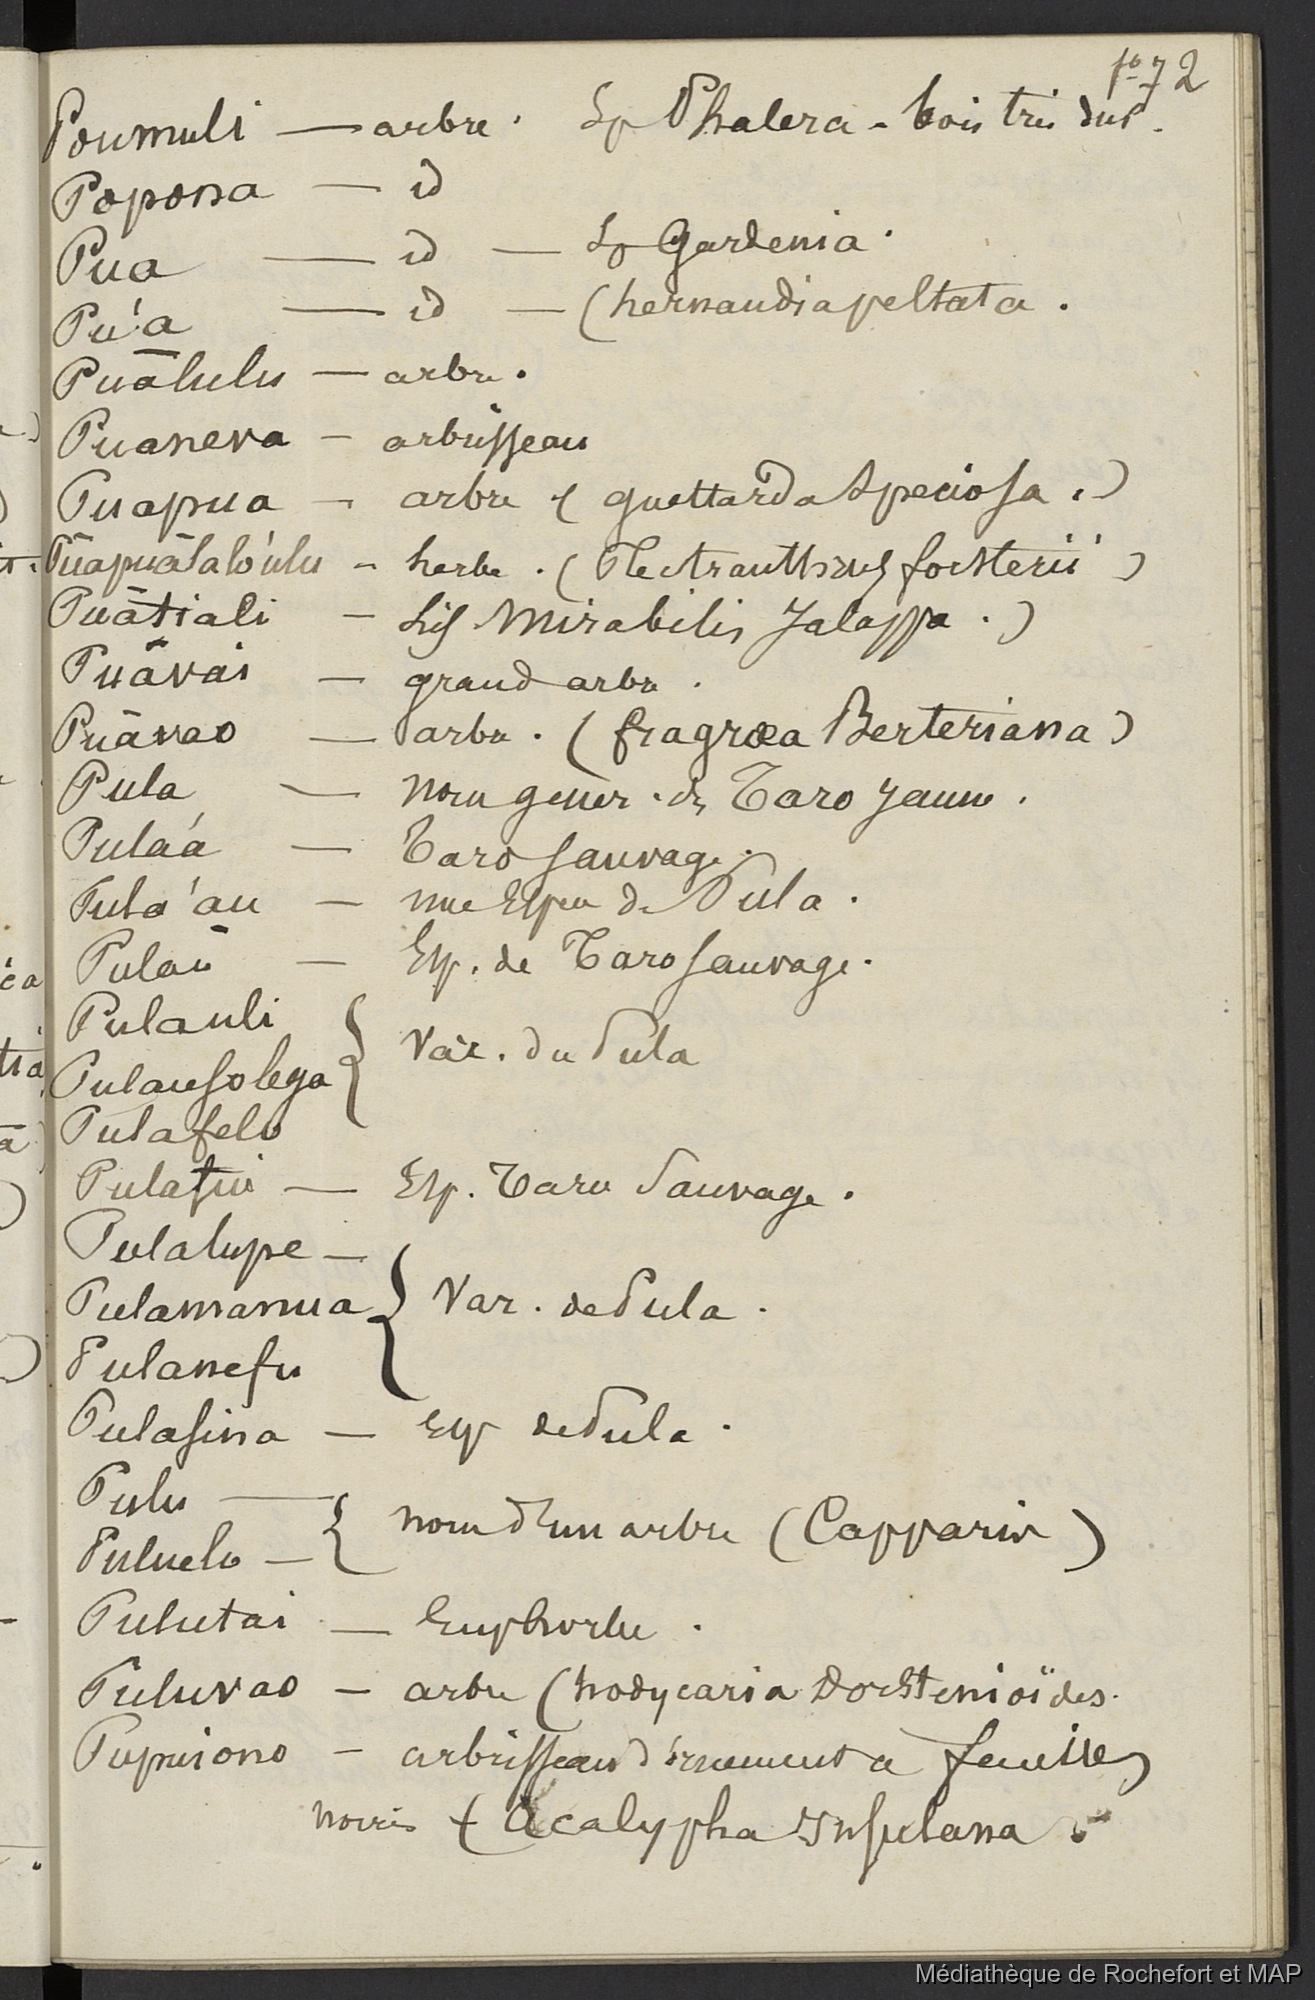 fo 72
Poumuli — arbre. Sp Phalera - bois très dur.
Popona — id
Pua — id — Sp Gardenia.
Pu'a — id — (hernandia peltata.
Puālulu — arbre.
Puaneva — arbrisseau
Puapua - arbre (guettarda speciosa.)
Pūapuātalo'ulu - herbe. (Plectranthus forsterii)
Puātiali — Lis Mirabilis Jalappa.)
Puāvai — grand arbre.
Puāvao — arbre. (fragræa Berteriana)
Pula — nom géner. de Taro jaune.
Pulaá — Taro sauvage.
Pula'au — une Espèce de Pula.
Pulaū — Esp. de Taro sauvage.
Pulauli
Pulausolega { Var. du Pula
Pulafelo
Pulatui — Esp. Taro Sauvage.
Pulalupe —
Pulamanua { Var. de Pula.
Pulanefu
Pulasina — Esp de Pula.
Pulu —
Puluelo — { nom d'un arbre (Capparis)
Pulutai — Euphorbe.
Puluvao — arbre (trodycaria Dorstenioïdes.
Pupuiono — arbrisseau d'ornement a feuilles
noires (Acalypha Insulana
Médiathèque de Rochefort et MAP